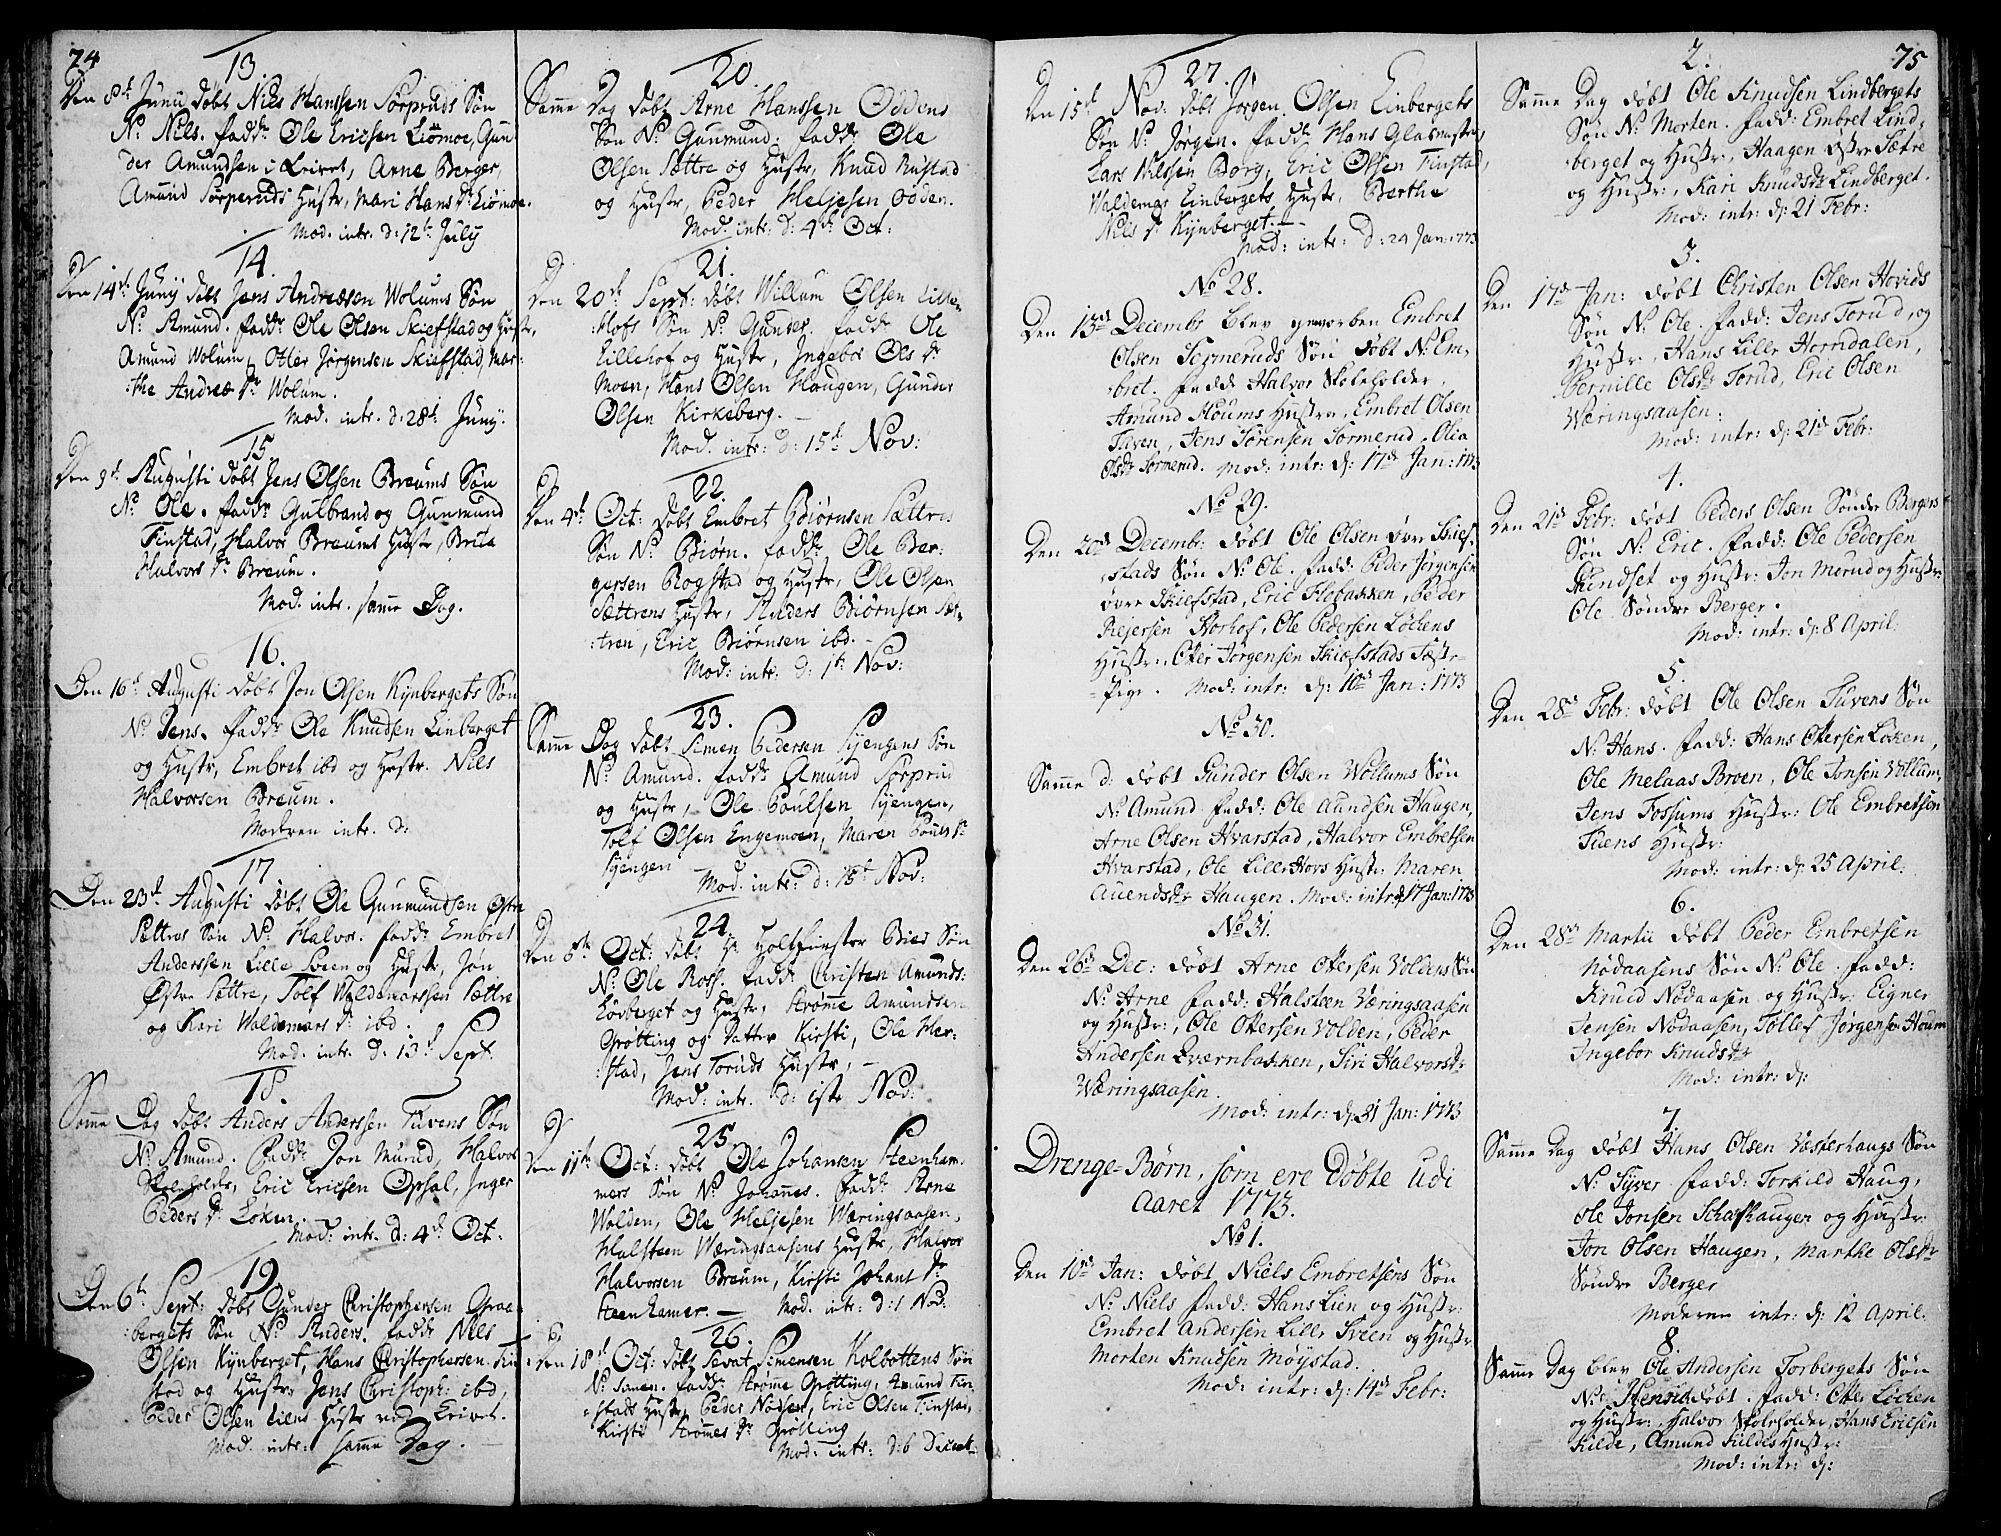 74
13
Den 8de Junii døbt Niels Hanssen Sørpruds Søn
N: Nils. fadd: Ole Ericsen Liømoe, Gun
der Amundsen i Leiret, Arne Berger,
Amund Sørperuds Hustr, Mari Hans Dr Liømoe.
Mod. intr. d: 12te July
14.
Den 14de Junij døbt Jens Andreæsen Wolums Søn
N: Amund. fadd: Ole Olsen Skiefstad og Hustr,
Amund Wolum, Otter Jørgensen Skiefstad, Mar-
:the Andreæ Dr Wolum.
Mod. intr. d: 28de Junij.
15.
Den 9de Augusti døbt Jens Olsen Bræums Søn
N: Ole. fadd: Gulbrand og Gunmund
Finstad, Halvor Bræums Hustr, Brita
Halvors Dr Breum.
Mod: intr. samme Dag.
16.
Den 16de Augusti døbt Jon Olsen Kynbergets Søn
N: Jens. fadd: Ole Knudsen Linberget
og Hustr, Embret ibd og Hustr. Niels
Halvorsen Bræum.
Moderen intr. d:
17
Den 23de Augusti døbt Ole Gunmundsen Østre
Sættres Søn N: Halvor. fadd: Embret
Anderssen Lille Sveen og Hustr, Jøn
Østre Sættre, Tolf Woldemarssen Sættre
og Kari Woldemars Dr ibd.
Mod. intr. d. 13de Sept
18.
Samme Dag døbt Anders Anderssen Tuvens Søn
N: Amund. fadd: Jon Murud, Halvor
Skoleholder, Eric Ericsen Opsal, Inger
Peders Dr Løken
Mod: intr. d: 4de Oct.
19.
Den 6te Sept: døbt Gunder Christophersen Graa-
:bergets Søn N: Anders. fadd: Niels
Olsen Kynberget, Hans Christophersen Fin
stad og Hustr, Jens Christoph: ibd,
Peder Olsen Liens Hustr ved Leiret.
Mod: intr: samme Dag.
20.
Samme Dag døbt Arne Hanssen Oddens
Søn N: Gunmund: fadd: Ole
Olsen Sættre og Hustr, Knud Rustad
og Hustr, Peder Heljesen Odden.
Mod: intr: d: 4de Oct:
21.
Den 20de Sept: døbt Willum Olsen Lille-
:Hofs Søn N: Gunder. fadd: Ole
Lillehof og Hustr, Ingebor Ols Dr
Moen, Hans Olsen Haugen, Gunder
Olsen Kirkeberg.
Mod. intr: d: 15de Nov:
22.
Den 4de Oct: døbt Embret Biørnsen Sættres
Søn N: Biørn. fadd: Ole Ber-
gersen Rogstad og Hustr, Ole Olsen
Sættrens Hustr, Anders Biørnsen Sæt-
:tren, Eric Biørnsen ibd.
Mod: intr: d: 1te Nov:
23.
Samme Dag døbt Simen Pedersen Syengens Søn
N: Amund. fadd: Amund Sørprud
og Hustr, Ole Poulsen Syengen,
Tolf Olsen Engemoen, Maren Pouls Dr
Syengen
Mod: intr: d: 15de Nov:
24.
Den 5te Oct: døbt Hr Holtzfurster Bies Søn
N: Ole Rosf. fadd: Christen Amunds:
Løvberget og Hustr, Strømme Amundsen
Grøtting og Datter Kirsti, Ole Mer-
:stad, Jens Toruds Hustr,
Mod: intr: d: 1ste Nov:
25.
Den 11te Oct: døbt Ole Johansen Steenham-
mers Søn N: Johannes. fadd: Arne
Wolden, Ole Heljesen Wæringsaasen,
Halsteen Wæringsaasens Hustr, Halvor
Halvorsen Breum, Kirsti Johans Dr
Steenhamer. Mod. intr: d: 1 Nov:
26.
Den 18de Oct: døbt Sevat Simensen Kolbottens Søn
N: Simen. fadd: Strømme Grøtting, Amund Fin
:stads Hustr, Peder Nødsen, Eric Olsen Finstad,
Kirsti Strømmes Dr Grøtting
Mod: intr: d: 6 Decemb.
27.
Den 15de Nov. døbt Jørgen Olsen Einbergets
Søn N: Jørgen. fadd: Hans Glasmester,
Lars Nilssen Borg, Eric Olsen Finstad,
Waldemar Einbergets Hustr, Berthe
Niels Dr Kynberget.
Mod: intr: d: 24 Jan: 1773
No 28.
Den 13de Decembr blev geworben Embret
Olsen Sormeruds Søn døbt N: Em-
:bret. fadd: Halvor Skoleholder,
Amund Houms Hustru, Embret Olsen
Tuven, Jens Sørensen Sormerud, Olia
Olsdr Sormerud. Mod: intr: d: 17de Jan: 1773
No 29.
Den 20de Decembr: døbt Ole Olsen øvre Skief-
:stads Søn N: Ole. fadd: Peder Jørgensen
øvre Skiefstad, Eric Flobakken, Peder
Rejersen Storhof, Ole Pedersen Løckens
Hustr:, Otter Jørgensen Skiæfstads Fæste-
-Pige. Mod: intr: d: 10de Jan: 1773
No 30.
Samme d: døbt Gunder Olsen Wollums Søn
N: Amund. fadd: Ole Aundsen Haugen,
Arne Olsen Hvarstad, Halvor Embretsen
Hvarstad, Ole Lille Hovs Hustr: Maren
Auendsdr Haugen. Mod: intr: d: 17 Jan: 1773
No 31.
Den 26de Dec: døbt Arne Ottersen Voldens Søn
N: Arne fadd: Halsteen Væringsaasen
og Hustr:, Ole Ottersen Volden, Peder
Andersen Qværnbakken, Siri Halvorsdr
Wæringsaasen.
Mod: intr: d: 31 Jan: 1773
Drenge-Børn, som ere Døbte udi
Aaret 1773.
No 1.
Den 10de Jan: døbt Niels Embretsens Søn
N: Niels fadd: Hans Lien og Hustr:
Embret Andersen Lille Sveen og Hustr:
Morten Knudsen Møystad.
Mod: intr: d: 14de Febr:
75
2.
Samme Dag døbt Ole Knudsen Lindbergets
Søn N: Morten. fadd: Embret Lind-
:berget og Hustr:, Haagen østre Sætre
og Hustr:, Kari Knudsdr Lindberget.
Mod: intr: d: 21 Febr:
3.
Den 17de Jan: døbt Christen Olsen Hovids
Søn N: Ole. fadd: Jens Torud, og
Hustr:, Hans Lille Horndalen,
Pernille Olsdr Torud, Eric Olsen
Wæringsaasen:
Mod: intr: d: 21de Febr:
4.
Den 21de Febr: døbt Peders Olsen Søndre Bergers
Søn N: Eric. fadd: Ole Pedersen
Rindset og Hustr: Jon Merud og Hustr:
Ole Søndre Berger.
Mod: intr: d: 8 April:
5.
Den 28de Febr: døbt Ole Olsen Tuvens Søn
N: Hans. fadd: Hans Ottersen Løken,
Ole Melaas Broen, Ole Jonsen Vollum,
Jens Fossums Hustr: Ole Embretsen
Tuens Hustr:
Mod: intr: d: 25 April:
6.
Den 28de Martii døbt Peder Embretsen
Nødaasens Søn N: Ole. fadd:
Knud Nødaasen og Hustr: Eigner
Jensen Nødaasen, Tøllef Jørgensen Houm
Ingebor Knudsdr
Mod: intr: d:
7.
Samme Dag døbt Hans Olsen Væsterhaugs Søn
N: Syver fadd: Torkild Haug,
Ole Jonsen Schafhaugen og Hustr:
Jon Olsen Haugen, Marthe Olsdr
Søndre Berger
Moderen intr: d: 12 April.
8.
Samme Dag blev Ole Andersen Torbergets Søn
N: Henric døbt. fadd: Otter Løcken
og Hustr:, Halvor Skoleholder, Hans Ericsen
Kilde, Amund Kildes Hustr:
Mod: intr: d: